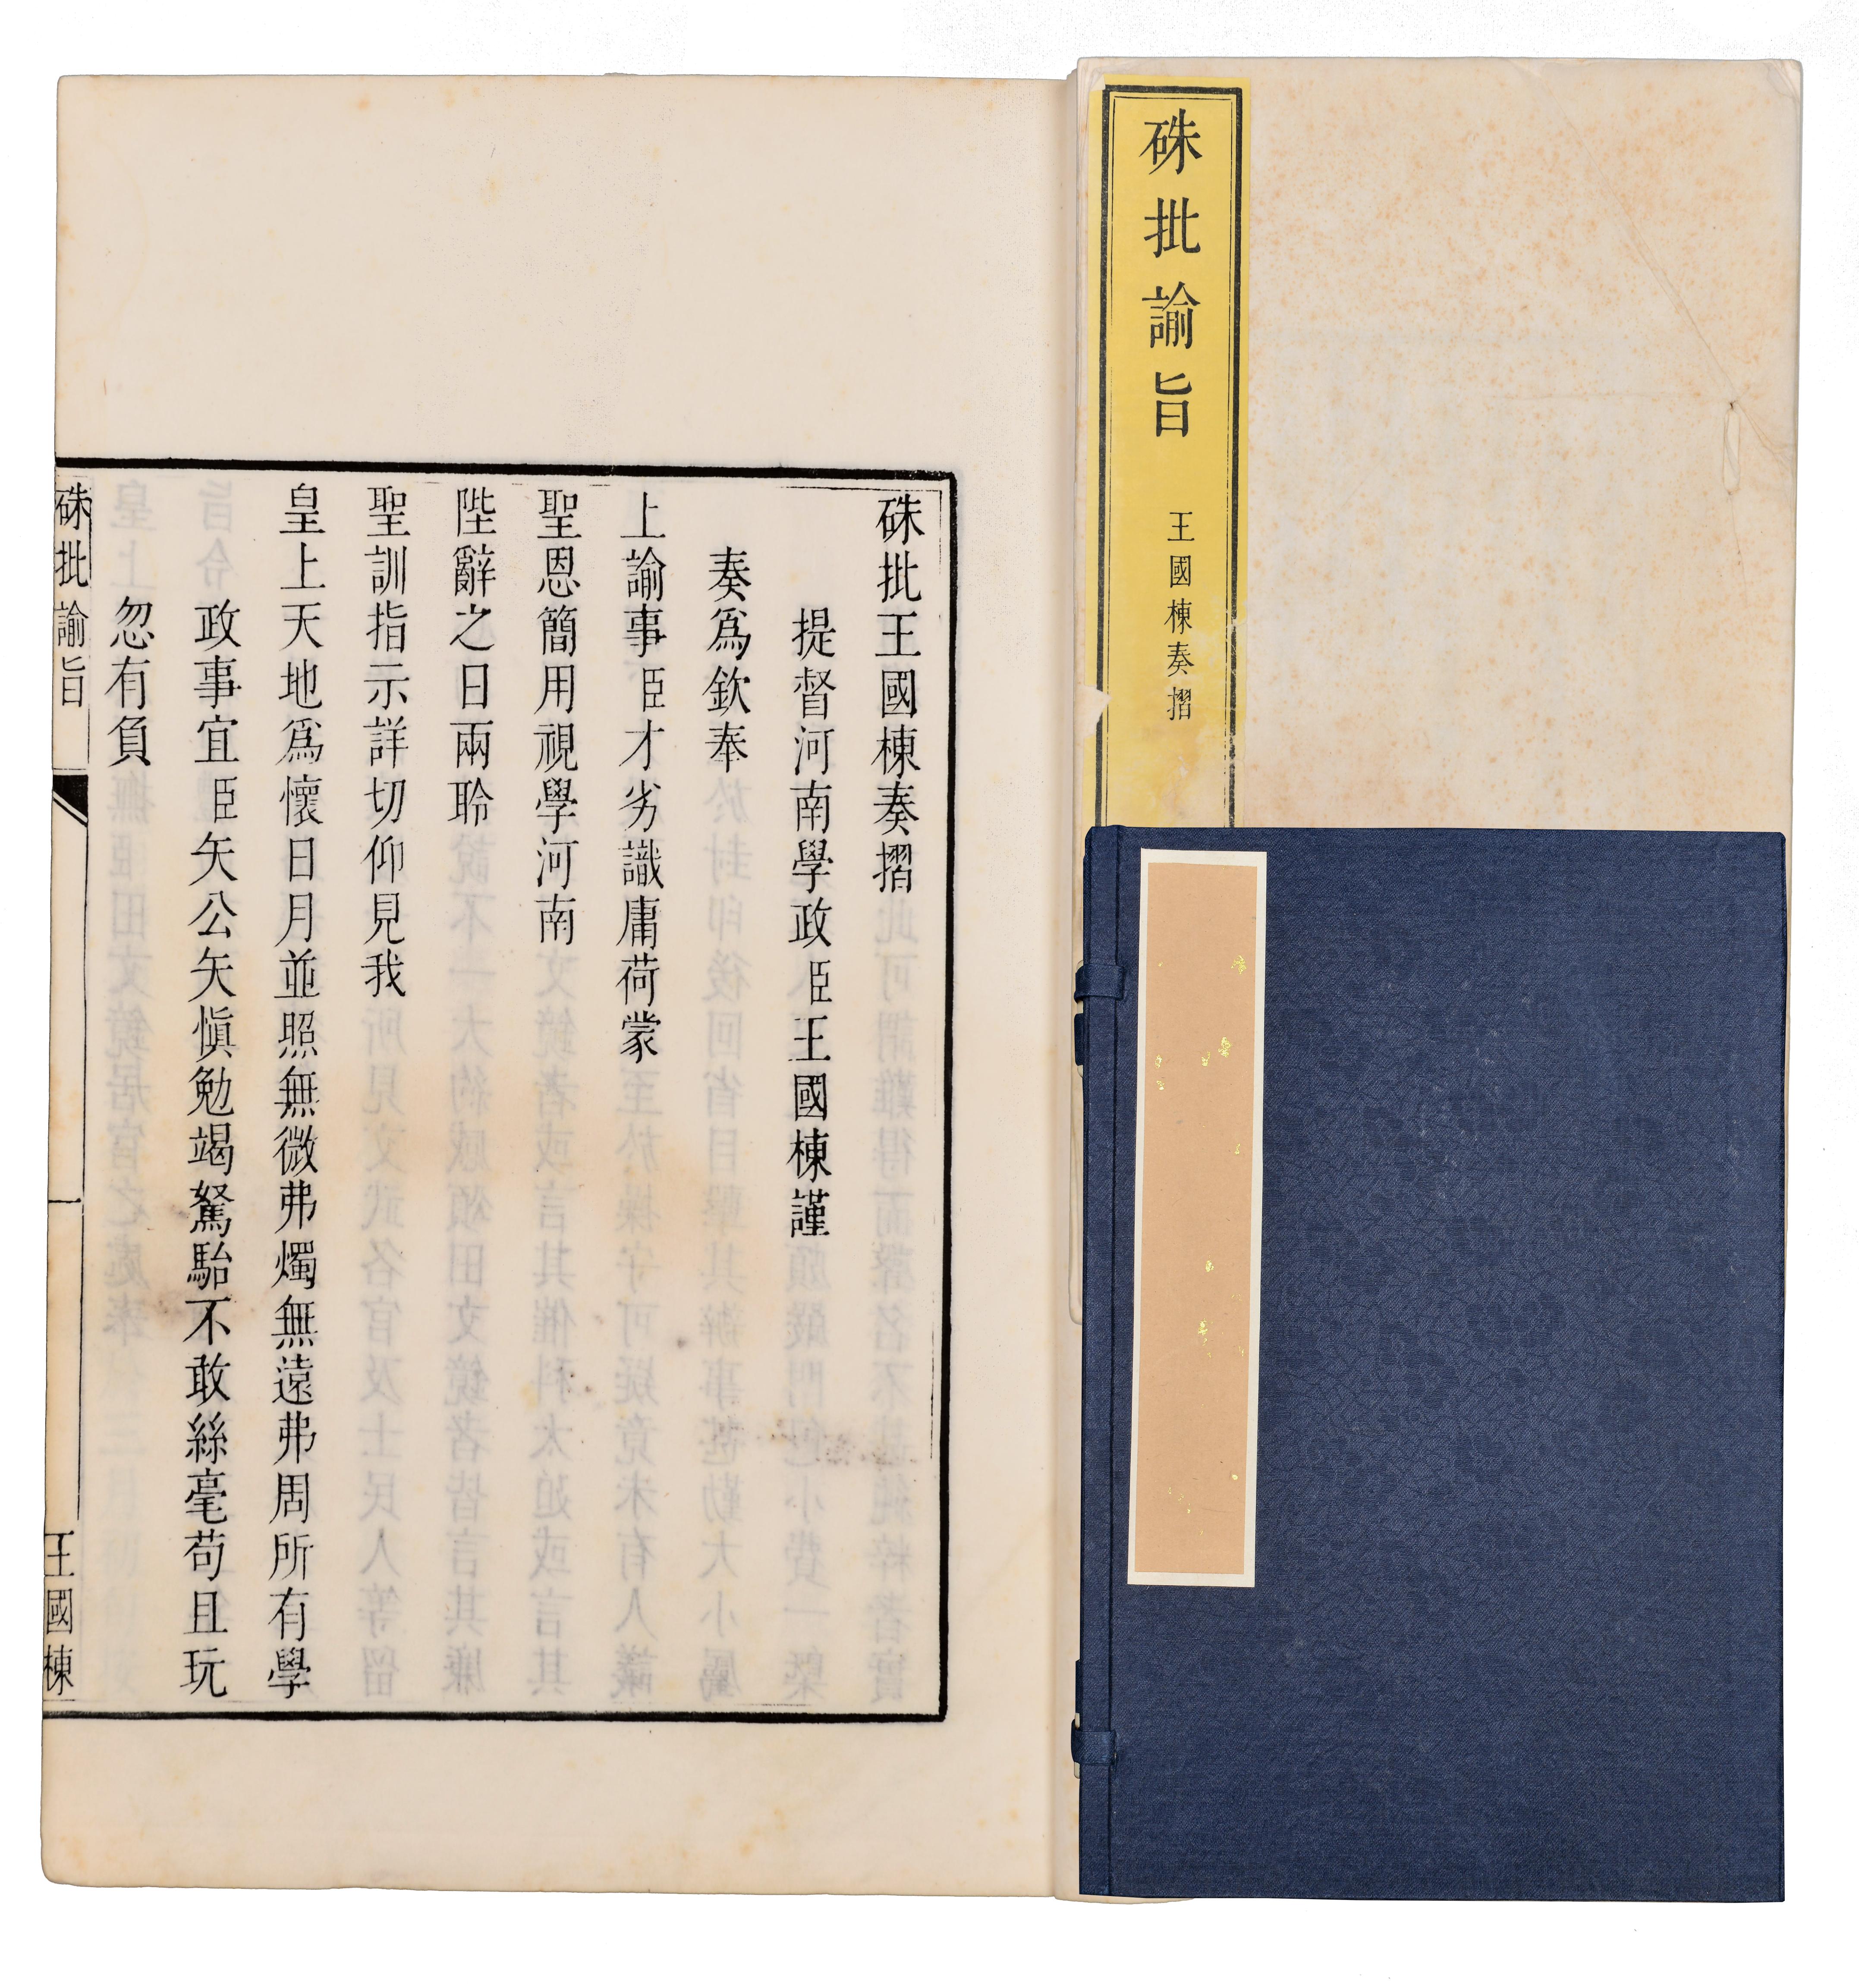 硃批諭旨
王國棟奏摺
硃批王國棟奏摺
提督河南學政臣王國棟謹
奏爲欽奉
上諭事臣才劣識庸荷蒙
聖恩簡用視學河南
陛辭之日兩聆
聖訓指示詳切仰見我
皇上天地爲懷日月並照無微弗燭無遠弗周所有學
政事宜臣矢公矢愼勉竭駑駘不敢絲毫苟且玩
忽有負
硃批諭旨
一
王國棟